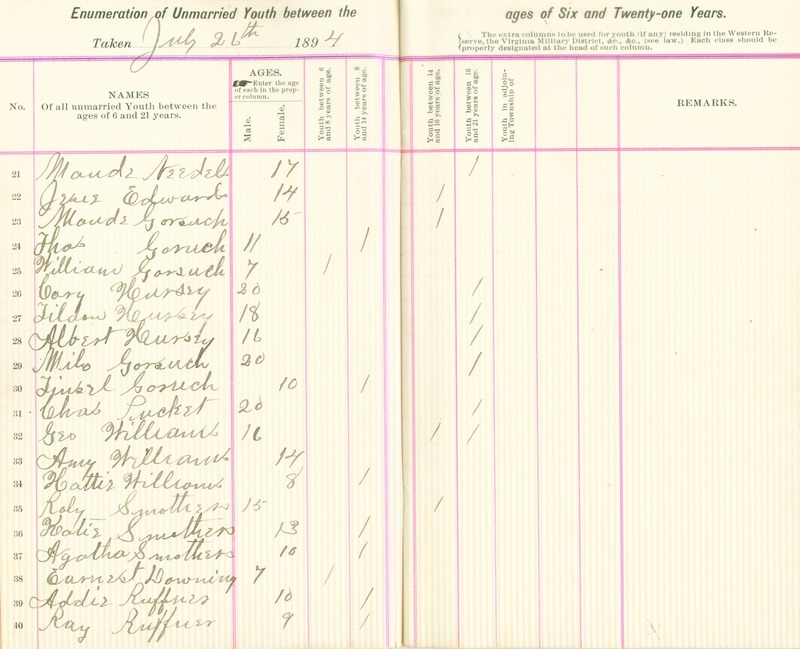 Enumeration of Unmarried Youth between the ages of Six and Twenty-one Years.
Taken July 26th 1894
The extra columns to be used for youth (if any) residing in the Western Re-
serve, the Virginia Military District, &c., &c., (see law.) Each class should be
properly designated at the head of such column.
No.
NAMES
Of all unmarried Youth between the
ages of 6 and 21 years.
AGES.
Enter the age
of each in the prop-
er column.
Male.
Female.
Youth between 6
and 8 years of age.
Youth between 8
and 14 years of age.
Youth between 14
and 16 years of age.
Youth between 16
and 21 years of age.
Youth in adjoin-
ing Township of
REMARKS.
21 Maude Needels 17 /
22 Jesie Edwards 14 /
23 Maude Gorsuch 15 /
24 Thos Goruch 11 /
25 William Gorsuch 7 /
26 Cary Hursey 20 /
27 Tildon Hursey 18 /
28 Albert Hursey 16 /
29 Milo Gorsuch 20 /
30 Goruch 10 /
31 Chas Pucket 20 /
32 Geo Williams 16 / /
33 Amy Williams 14
34 Hattie Williams 8 /
35 Roly Smothers 15 /
36 Katie Smothers 13 /
37 Agatha Smothers 10 /
38 Earnest Downing 7 /
39 Addie Ruffner 10 /
40 Ray Ruffner 9 /